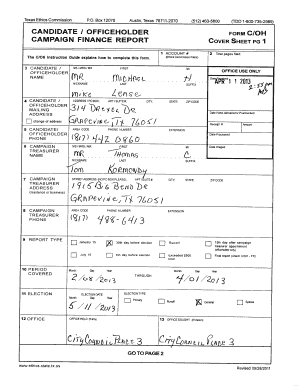 Texas Ethics Commission P.O. Box 12070 Austin, Texas 78711-2070 (512) 463-5800 (TDD 1-800-735-2989)
CANDIDATE / OFFICEHOLDER FORM C/OH
CAMPAIGN FINANCE REPORT COVER SHEET PG 1
The C/OH Instruction Guide explains how to complete this form.
1 ACCOUNT #
2 Total pages filed:
3 CANDIDATE / OFFICEHOLDER NAME
MS / MRS / MR FIRST MI
MR Michael H
NICKNAME LAST SUFFIX
Mike Lease
OFFICE USE ONLY
APR 1 2013
4 CANDIDATE / OFFICEHOLDER MAILING ADDRESS
ADDRESS / PO BOX; APT / SUITE #; CITY; STATE; ZIP CODE
GRAPEVINE, TX 76051
change of address
5 CANDIDATE/ OFFICEHOLDER PHONE
AREA CODE PHONE NUMBER EXTENSION
(817) 442 0860
6 CAMPAIGN TREASURER NAME
MS / MRS / MR FIRST MI
MR Thomas C
NICKNAME LAST SUFFIX
Tom Kormondy
7 CAMPAIGN TREASURER ADDRESS
(residence or business)
1915 Big Bend DR
GRAPEVINE, TX 76051
8 CAMPAIGN TREASURER PHONE
AREA CODE PHONE NUMBER EXTENSION
(817) 488-6413
9 REPORT TYPE
January 15 30th day before election Runoff 15th day after campaign treasurer appointment (officeholder only)
July 15 8th day before election Exceeded $500 limit Final report
10 PERIOD COVERED
Month Day Year THROUGH Month Day Year
2/08/2013 4/01/2013
11 ELECTION
ELECTION DATE ELECTION TYPE
Month Day Year
5/11/2013
Primary Runoff General Special
12 OFFICE
OFFICE HELD (if any)
City Council Place 3
13 OFFICE SOUGHT (if known)
City Council Place 3
GO TO PAGE 2
www.ethics.state.tx.us Revised 09/28/2011